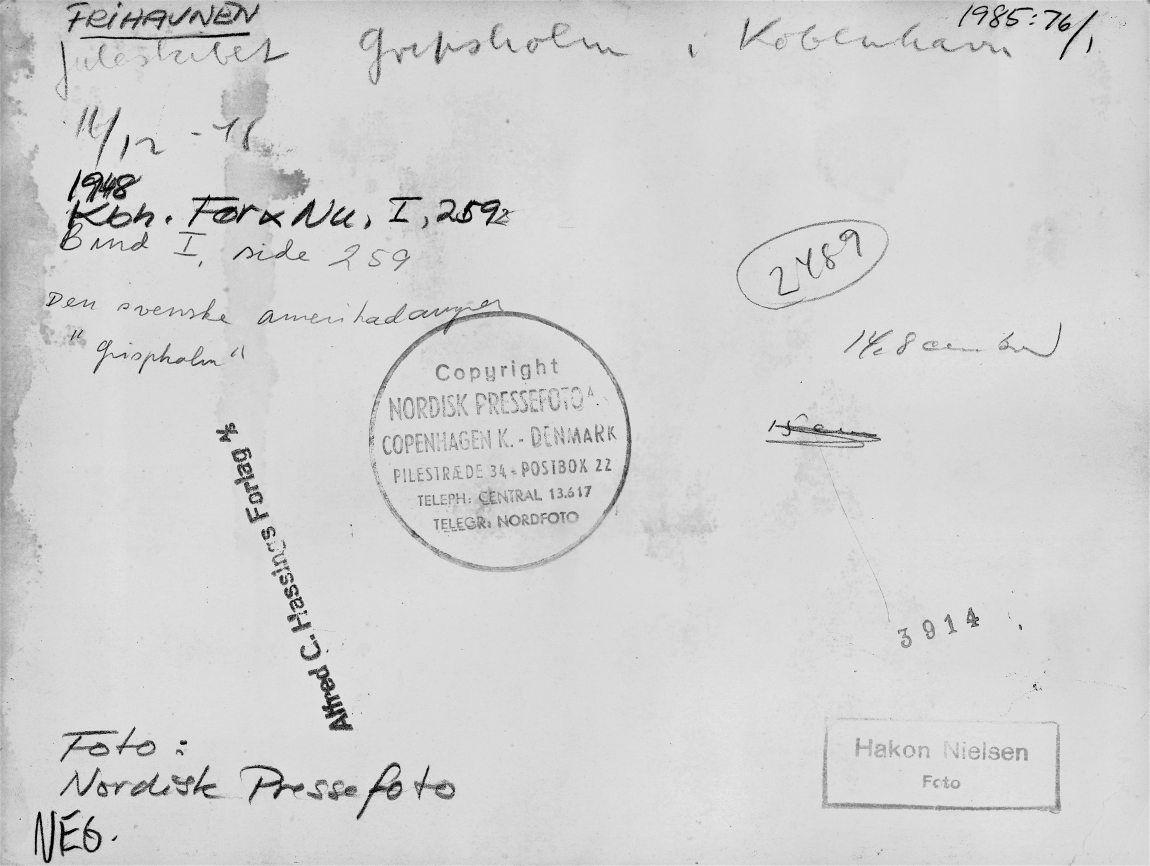 FRIHAVNEN
1985:76/1
Juleskibet Gripsholm i København
1948
Kbh. Før & Nu, I, 259
Bind I, side 259
2489
Den svenske amerikadamper
"Gripsholm"
Copyright
NORDISK PRESSEFOTO
COPENHAGEN K. - DENMARK
PILESTRÆDE 34 - POSTBOX 22
TELEPH: CENTRAL 13.617
TELEGR: NORDFOTO
Alfred C. Hassings Forlag
3914
Hakon Nielsen
Foto
Foto:
Nordisk Pressefoto
NEG.